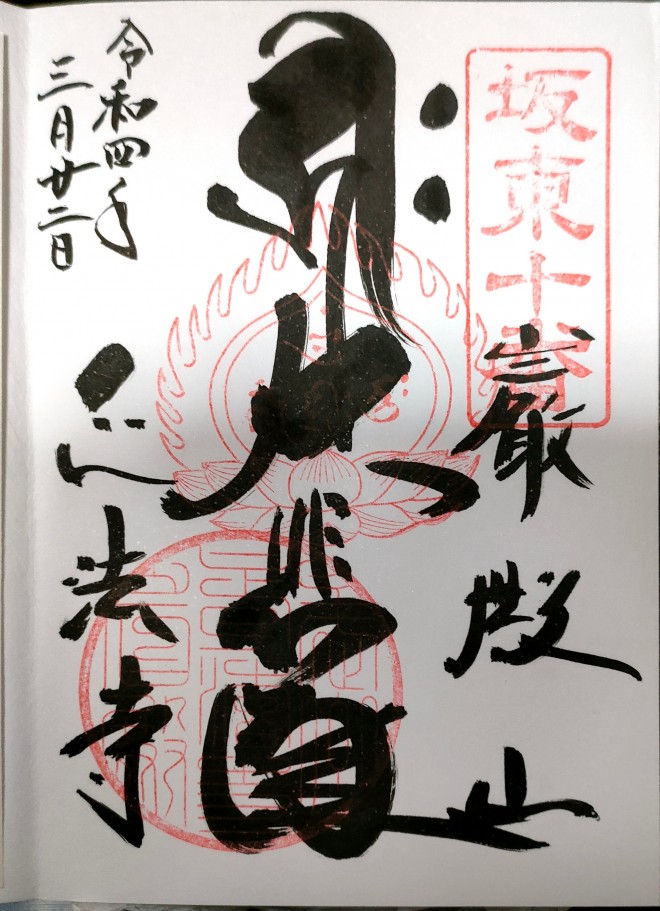 坂東十番
巌殿山
大悲閣
正法寺
令和四年
三月廿二日